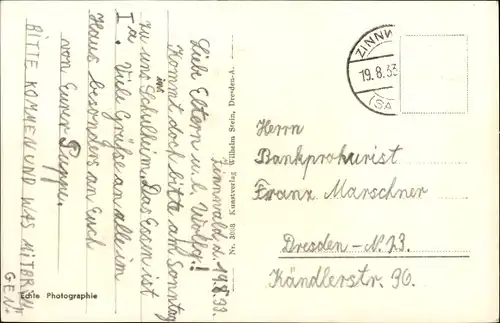 Zinnwald d. 19.8.33.
Liebe Eltern u. l. Wolfg.!
Kommt doch bitte am Sonntag
zu uns ins Schulheim. Das Essen ist
I a. Viele Grüße an alle im
Haus besonders an Euch
von Eurer Puppe.
BITTE KOMMEN UND WAS MITBRIN
GEN.
Echte Photographie
Nr. 3603 Kunstverlag Wilhelm Stein, Dresden-A.
ZINNW
19.8.33
(SA
Herrn
Bankprokurist
Franz Marschner
Dresden-N. 23.
Kändlerstr. 30.